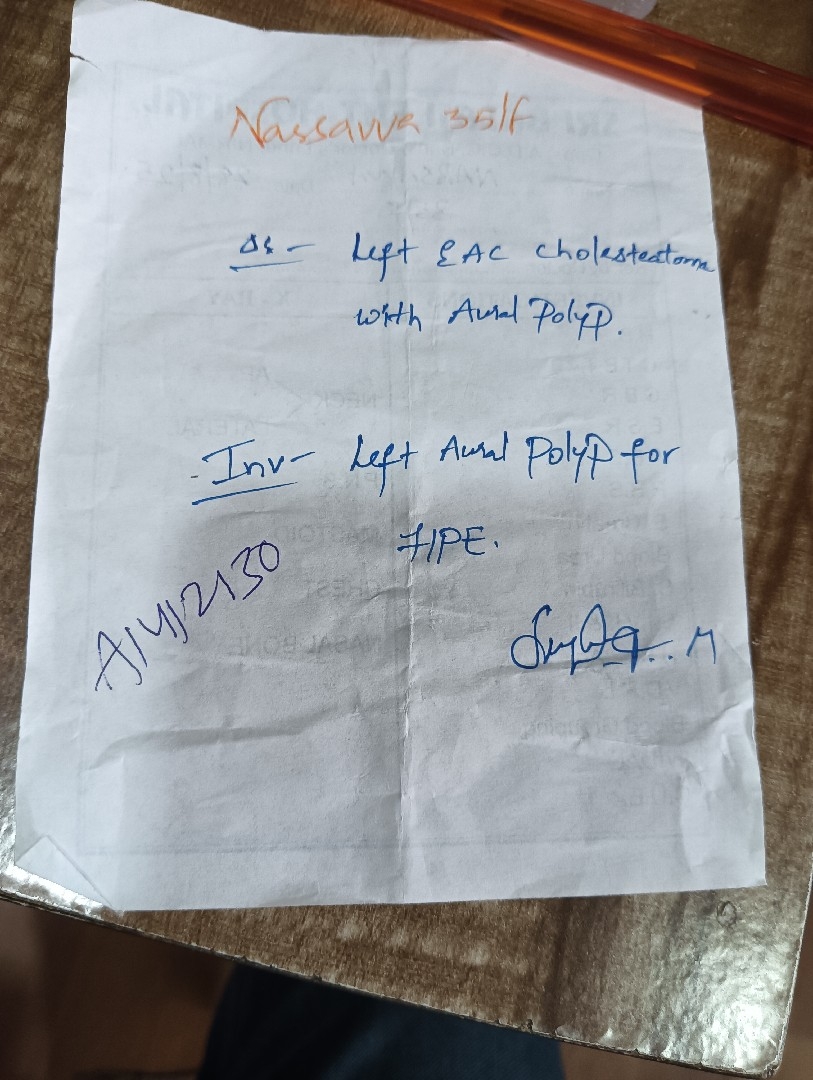 Nassavva 35/f
Δs - Left EAC cholesteatoma
with Aural Polyp.
Inv- Left Aural Polyp for
HPE.
A/4/2130